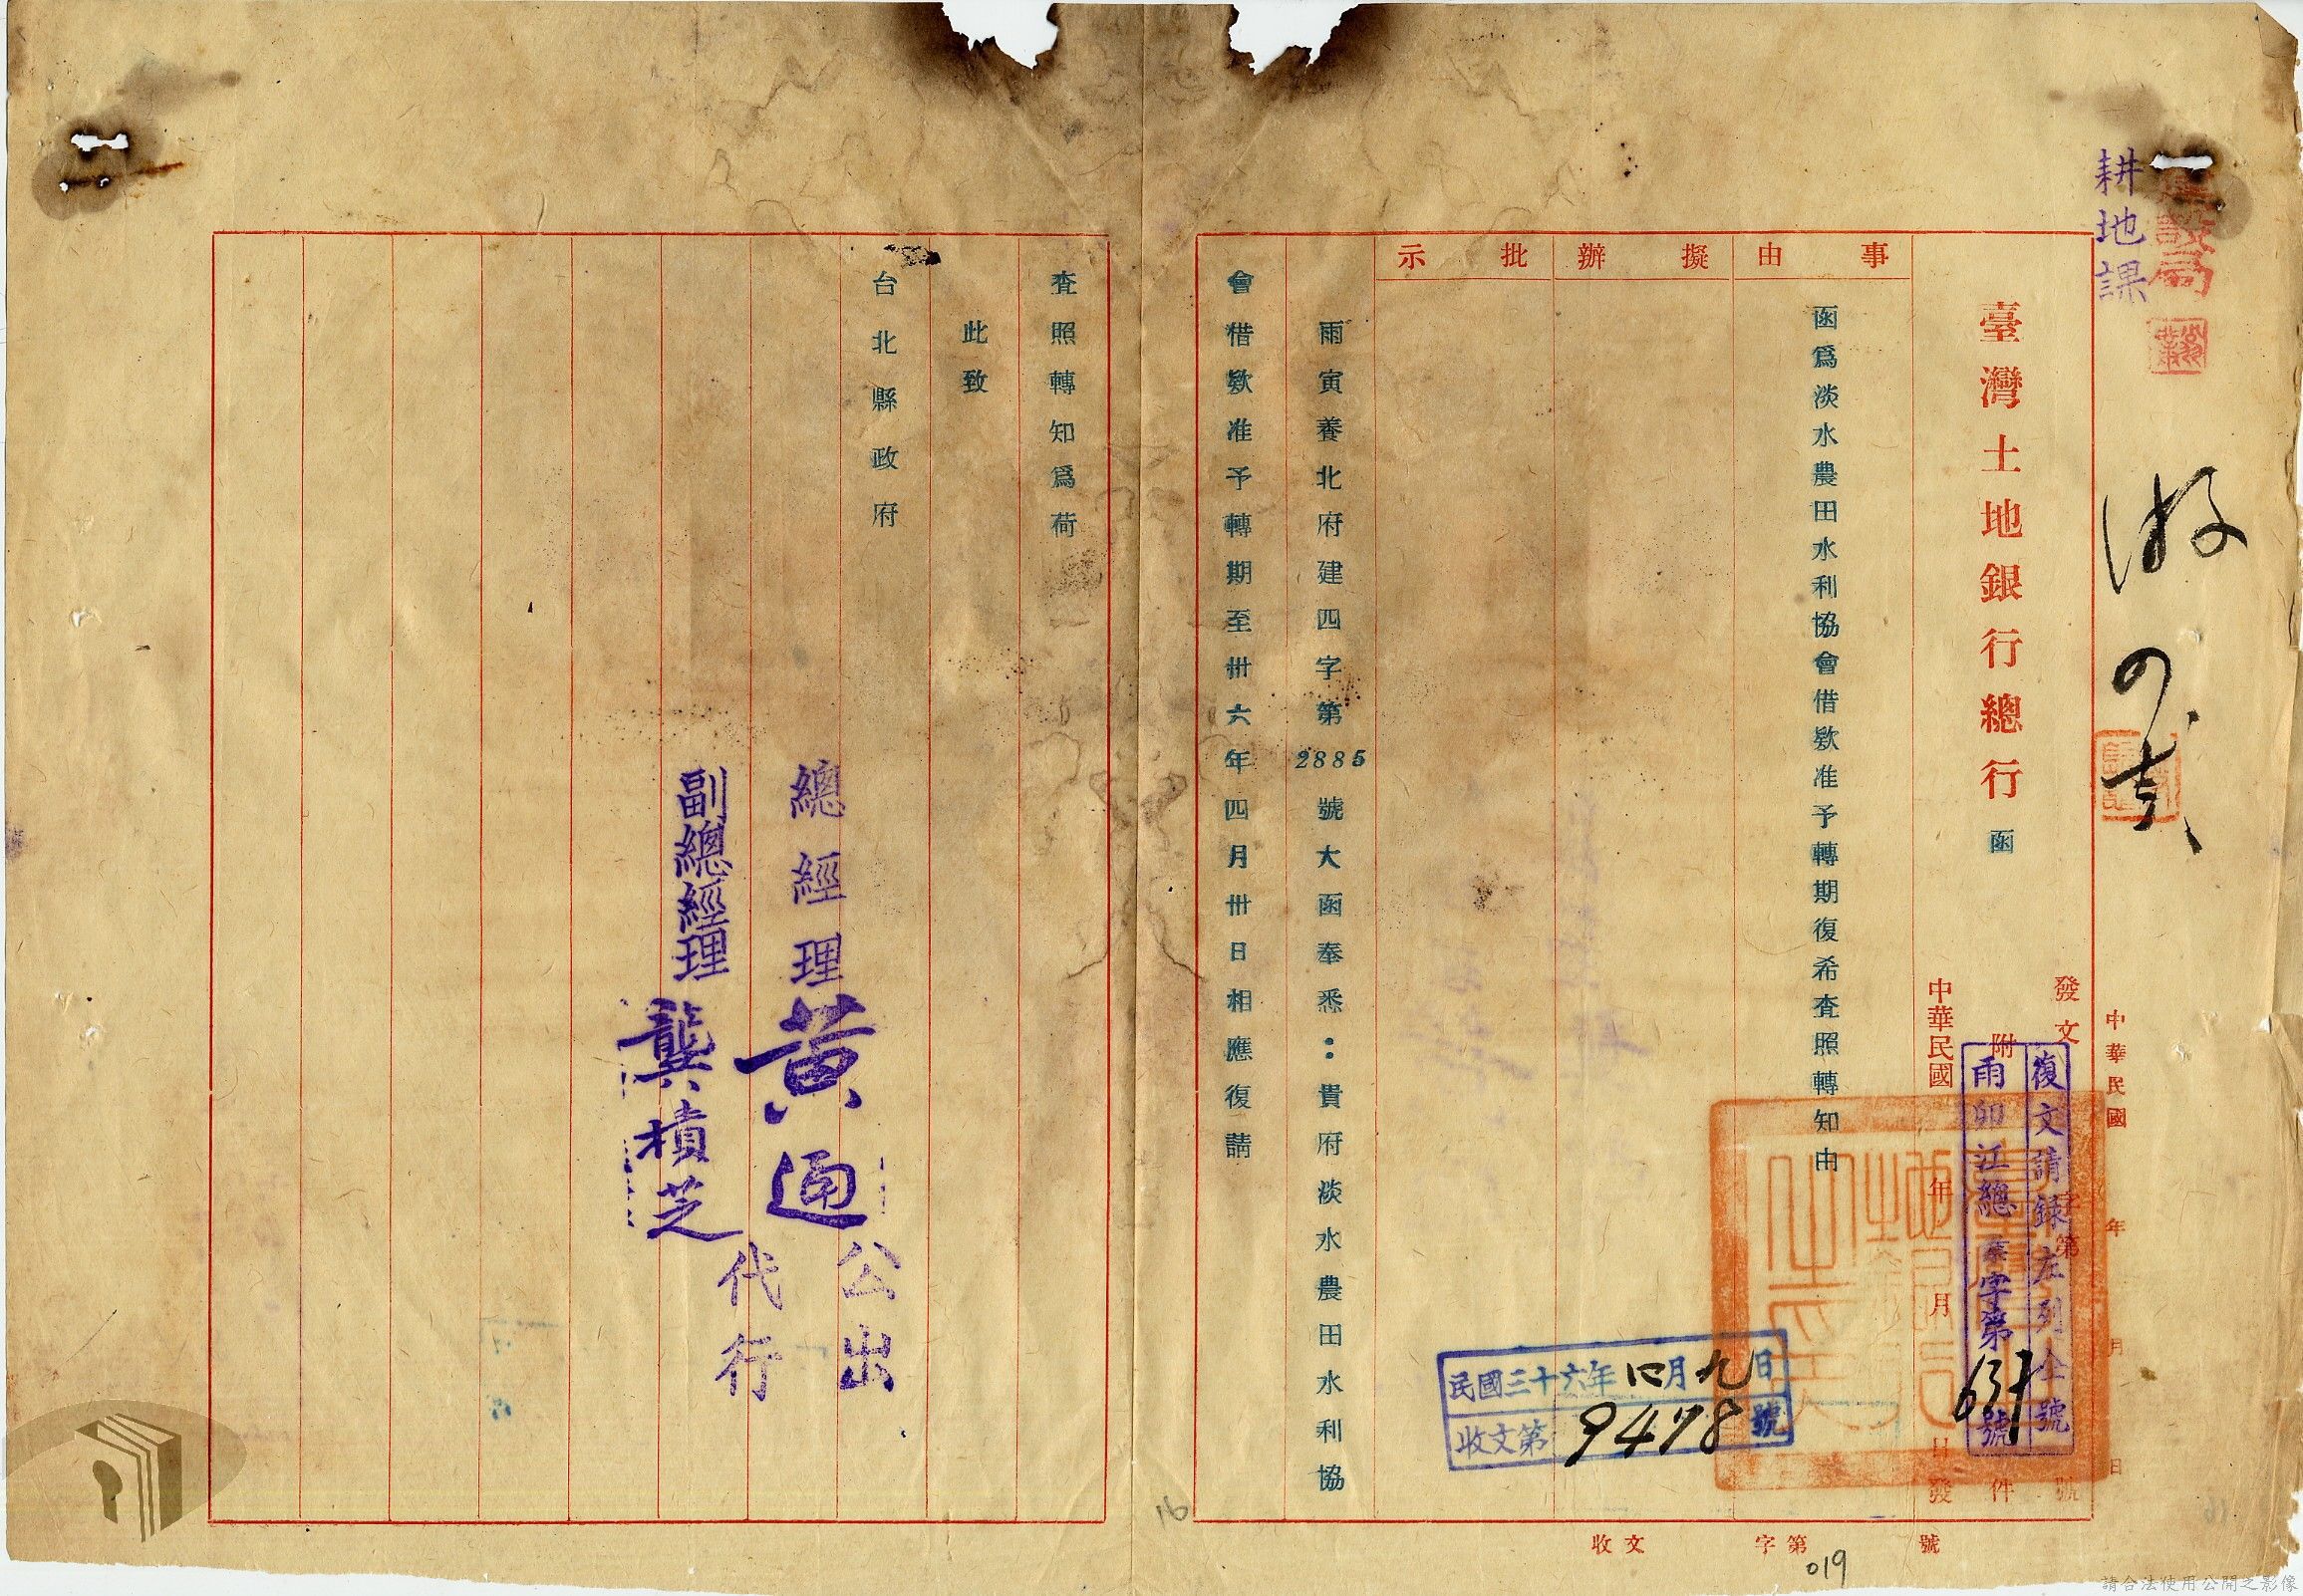 建設局
耕地課
中華民國 年 月 日
發文 字第 號
復文請錄左列全號
雨卯江總業字第631號
附 件
臺灣土地銀行總行 函
中華民國 年 月 日發
事由
擬辦
批示
函爲淡水農田水利協會借欵准予轉期復希査照轉知由
雨寅養北府建四字第2885號大函奉悉：貴府淡水農田水利協
會借欵准予轉期至卅六年四月卅日相應復請
査照轉知爲荷
此致
台北縣政府
總經理 黃通 公出
副總經理 龔積芝 代行
民國三十六年四月九日
收文第9478號
收文 字第 號
019
16
請合法使用公開之影像